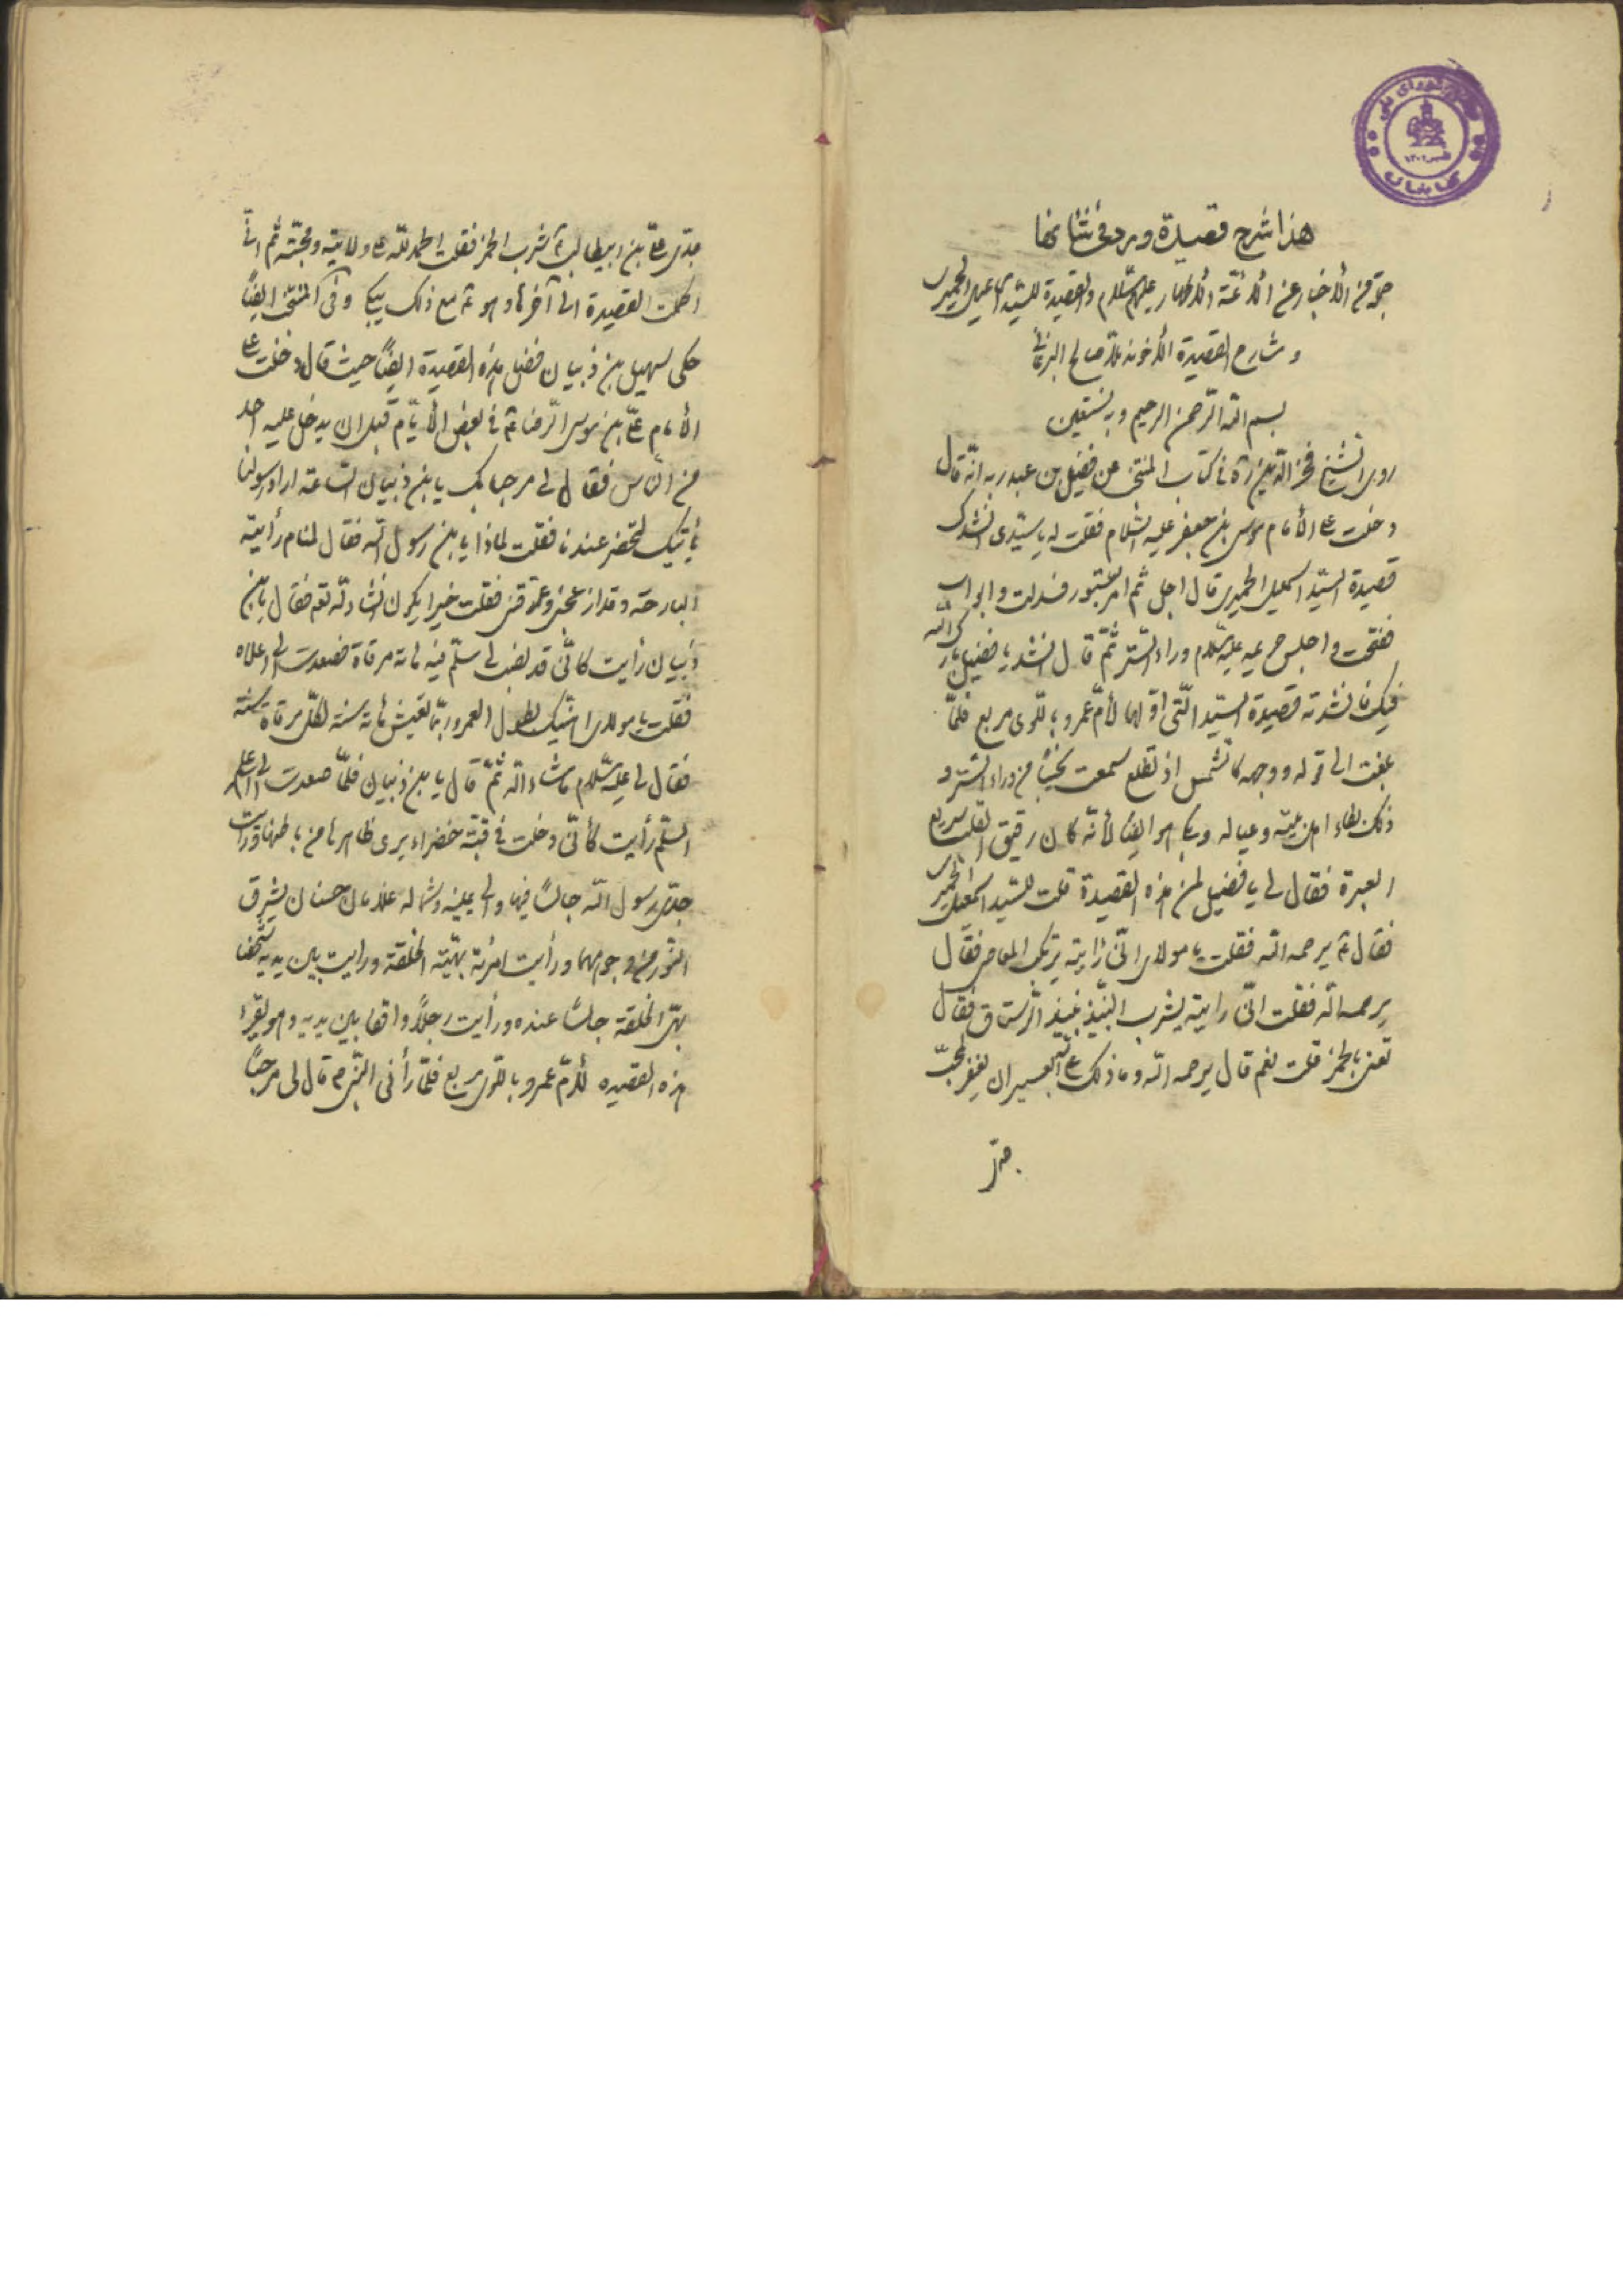 هذا شرح قصيدة ورد في شأنها
جمّ من الأخبار عن الأئمّة الأطهار عليهم السّلام والقصيدة للسّيّد اسماعيل الحميرى
و شارح القصيدة الأخوند ملّا صالح البرغانى
بسم اللّه الرّحمن الرحيم وبه نستعين
روى الشيخ فخر الدّين ره فى كتاب المنتخب عن فضيل بن عبد ربه انّه قال
دخلت على الأمام موسى بن جعفر عليه السّلام فقلت له يا سيّدى انشدك
قصيدة السيّد اسمعيل الحميرى قال اجل ثمّ امر بستور فسدلت و ابواب
ففتحت و اجلس حريمه عليه السّلام وراء السّتر ثمّ قال انشد يا فضيل بارك اللّه
فيك فانشدته قصيدة السيّد الّتى اوّلها لأمّ عمرو باللّوى مربع فلمّا
بلغت الى قوله ووجهه كالشّمس اذ تطلع سمعت نحيبًا من وراء السّتر و
ذلك لبكاء اهل بيته وعياله وبكى هو ايضًا لأنّه كان رقيق القلب سريع
العبرة فقال لى يا فضيل لمن هذه القصيدة قلت للسّيد اسمعيل الحميرى
فقال ع يرحمه اللّه فقلت يا مولاى انّى رايته يرتكب المعاصى فقال
يرحمه اللّه فقلت انّى رايته يشرب النّبيذ نبيذ الرّستاق فقال
تعنى بالخمر قلت نعم قال يرحمه اللّه وما ذلك على اللّه بعسير ان يغفر لمحبّ
جدّى
جدّى علىّ بن ابيطالب ع شرب الخمر فقلت الحمد للّه على ولايته ومحبّته ثم انّى
اكملت القصيدة الى آخرها وهو ع مع ذلك يبكى وفى المنتخب ايضًا
حكى سهيل بن ذبيان فضل هذه القصيدة ايضًا حيث قال دخلت على
الأمام علىّ بن موسى الرّضا ع فى بعض الأيّام قبل ان يدخل عليه احد
من النّاس فقال لى مرحبا بك يا بن ذبيان السّاعة اراد رسولنا
يأتيك لتحضر عندنا فقلت لماذا يا بن رسول اللّه فقال لمنام رأيته
البارحة وقد ازعجنى وارّقنى فقلت خيرا يكون انشاء اللّه تعه فقال يا بن
ذبيان رأيت كانّى قد نصب لى سلّم فيه مائة مرقاة فصعدت الى اعلاه
فقلت يا مولاى اهنّيك بطول العمر وربّما تعيش مائة سنة لكلّ مرقاة سنة
فقال لى عليه السّلام ما شاء اللّه ثمّ قال يا بن ذبيان فلمّا صعدت الى اعلى
السّلّم رأيت كأنّى دخلت فى قبّة خضراء يرى ظاهرها من باطنها ورأيت
جدّى رسول اللّه جالسًا فيها والى يمينه وشماله غلامان حسنان يشرق
النّور من وجوههما ورأيت امرئة بهيّة الخلقة ورايت بين يديه شخصا
بهىّ الخلقة جالسًا عنده ورأيت رجلًا واقفا بين يديه وهو يقرء
هذه القصيده لأمّ عمرو باللّوى مربع فلمّا رأنى النّبى م قال لى مرحبًا